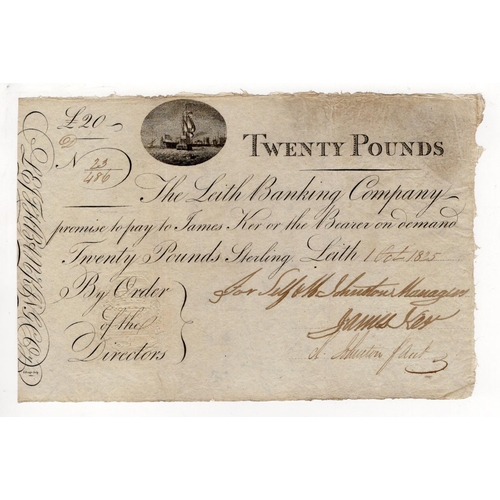 £20
TWENTY POUNDS
N 23/486
The Leith Banking Company
promise to pay to James Ker or the Bearer on demand
Twenty Pounds Sterling Leith 1 Oct 1825
By Order
of the
Directors
for Self & Johnston Manager
James Ker
Johnston Acct